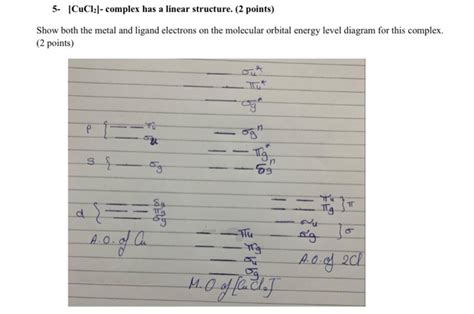 5- [CuCl₂]- complex has a linear structure. (2 points)
Show both the metal and ligand electrons on the molecular orbital energy level diagram for this complex.
(2 points)
σu*
πu*
σg*
p { πu
σu
σgⁿ
πg*
s { σg
δgⁿ
d { δg
πg
σg
πu
πg } π
σu
σg } σ
A.O. of Cu
πu
πg
σu
σg
A.O. of 2Cl
M.O of [CuCl₂]